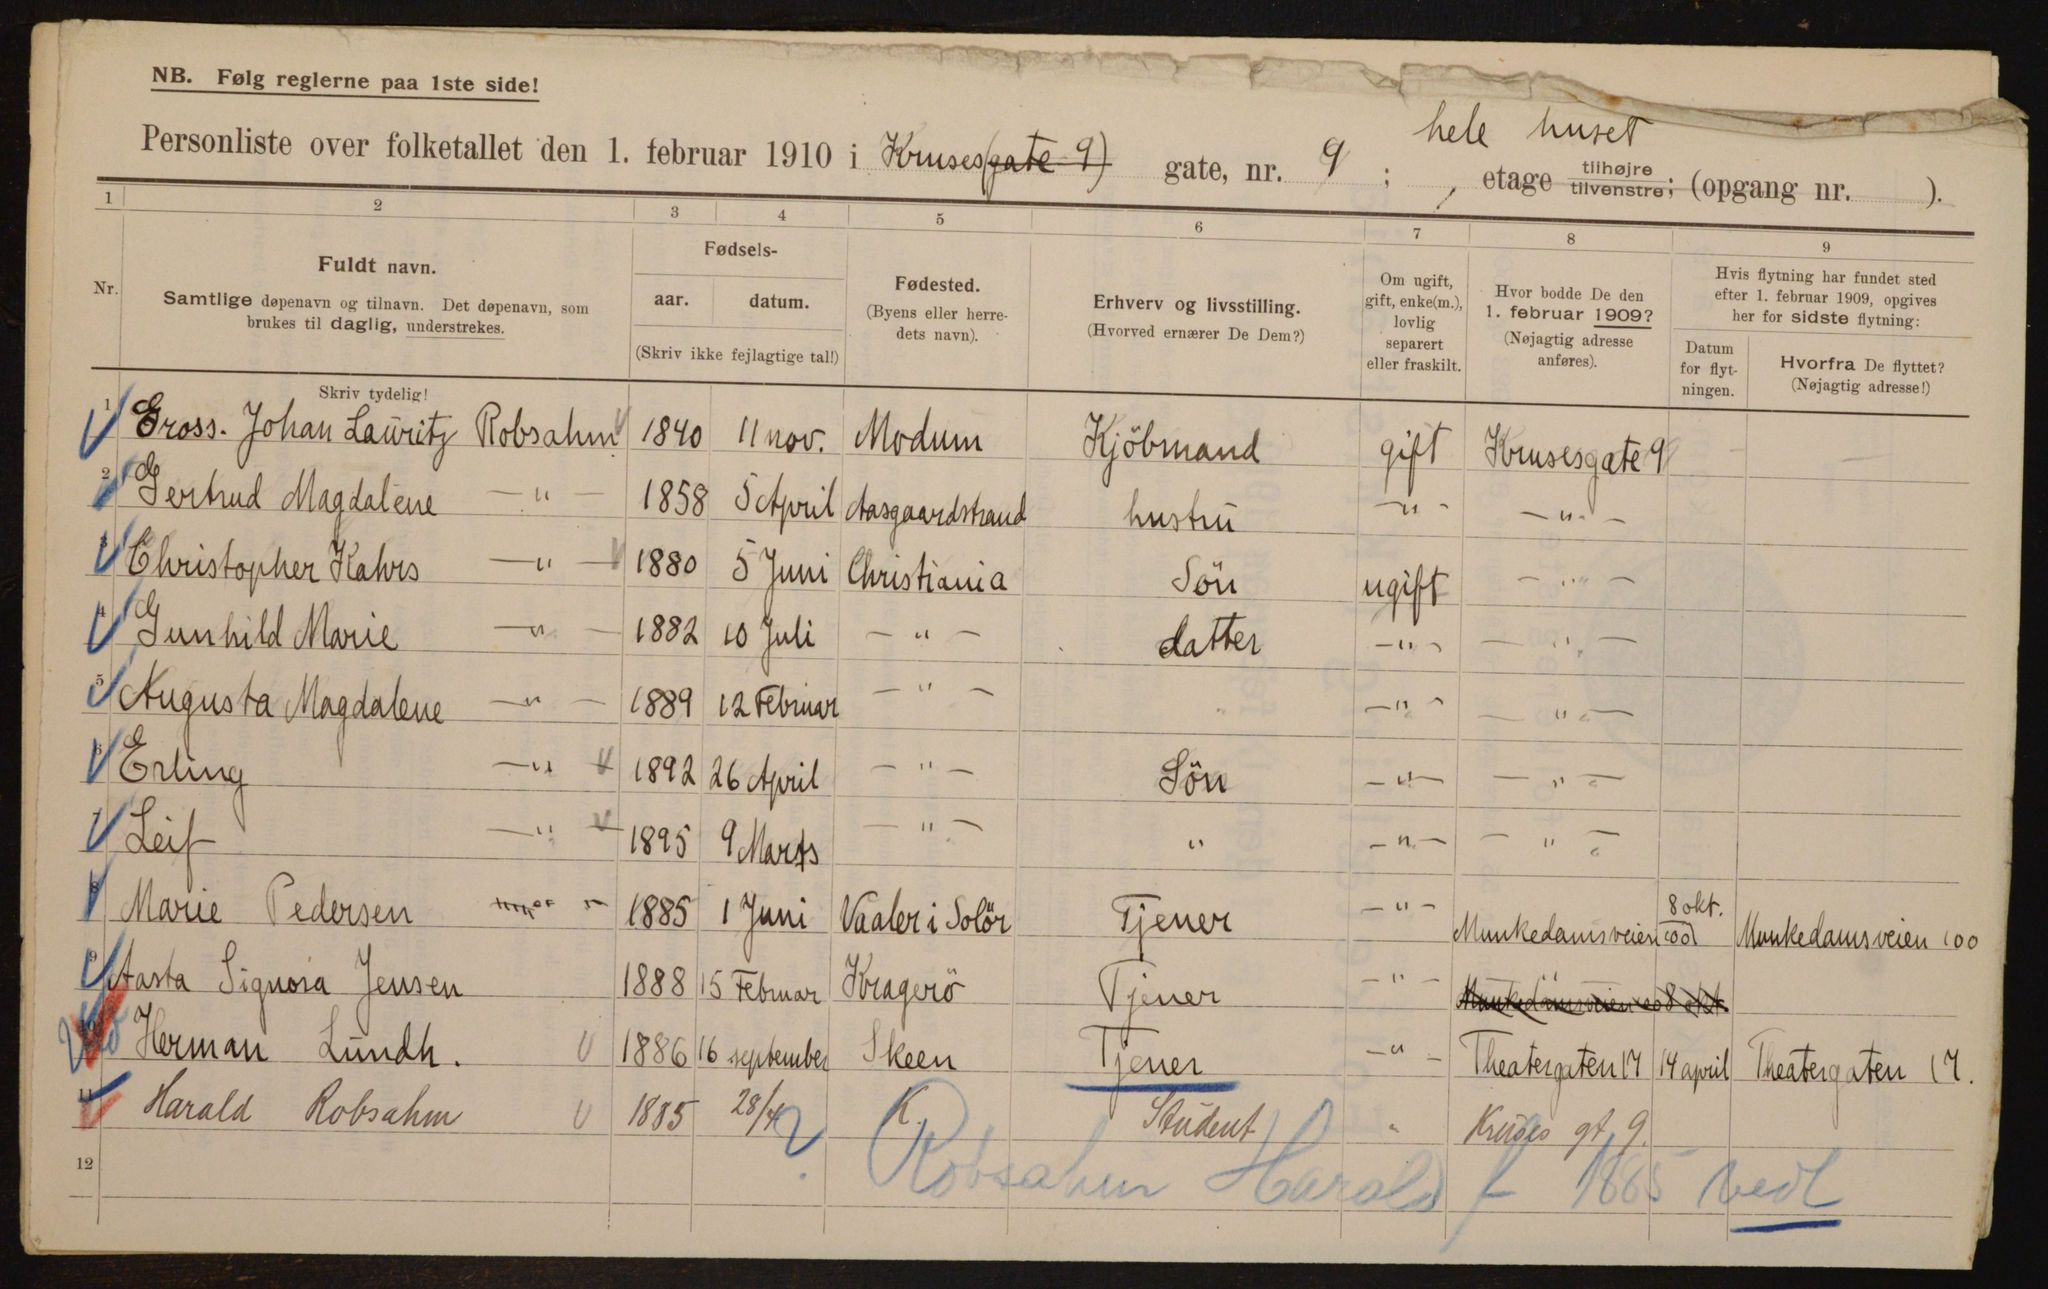 NB. Følg reglerne paa 1ste side!
hele huset
Personliste over folketallet den 1. februar 1910 i Kruses(gate 9) gate, nr. 9 ; , etage tilhøjre tilvenstre; (opgang nr. ).
1 2 3 4 5 6 7 8 9
Nr.
Fuldt navn.
Samtlige døpenavn og tilnavn. Det døpenavn, som
brukes til daglig, understrekes.
Skriv tydelig!
Fødsels-
aar. datum.
(Skriv ikke fejlagtige tal!)
Fødested.
(Byens eller herre-
dets navn).
Erhverv og livsstilling.
(Hvorved ernærer De Dem?)
Om ugift,
gift, enke(m.),
lovlig
separert
eller fraskilt.
Hvor bodde De den
1. februar 1909?
(Nøjagtig adresse
anføres).
Hvis flytning har fundet sted
efter 1. februar 1909, opgives
her for sidste flytning:
Datum
for flyt-
ningen.
Hvorfra De flyttet?
(Nøjagtig adresse!)
1 Gross. Johan Lauritz Robsahm 1840 11 nov. Modum Kjöbmand gift Krusesgate 9 — —
2 Gertrud Magdalene — " — 1858 5 April Aasgaardstrand hustru — " — — " —
3 Christopher Kahrs — " — 1880 5 Juni Christiania Sön ugift — " —
4 Gunhild Marie — " — 1882 10 Juli — " — datter — " — — " —
5 Augusta Magdalene — " — 1889 12 Februar — " — — " — — " —
6 Erling — " — 1892 26 April — " — Sön — " — — " —
7 Leif — " — 1895 9 Marts — " — " — " — — " —
8 Marie Pedersen 1885 1 Juni Vaaler i Solör Tjener — " — Munkedamsveien 100 8 okt. Munkedamsveien 100
9 Aasta Signora Jensen 1888 15 Februar Kragerö Tjener — " — Munkedamsveien 8 okt
10 Herman Lundh. 1886 16 september Skeen Tjener — " — Theatergaten 17 14 april Theatergaten 17.
11 Harald Robsahm 1885 28/4 K. Student " Kruses gt 9.
12 ? Robsahm Harald f 1885 vedl